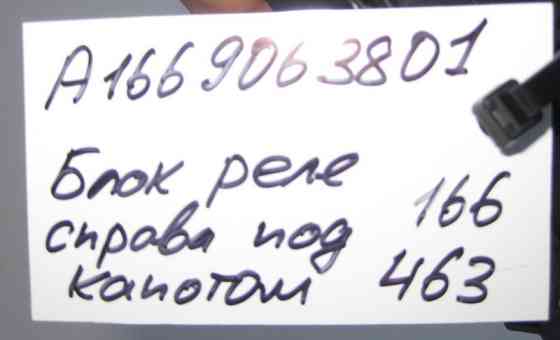 А1669063801
Блок реле
справа под 166
капотом 463